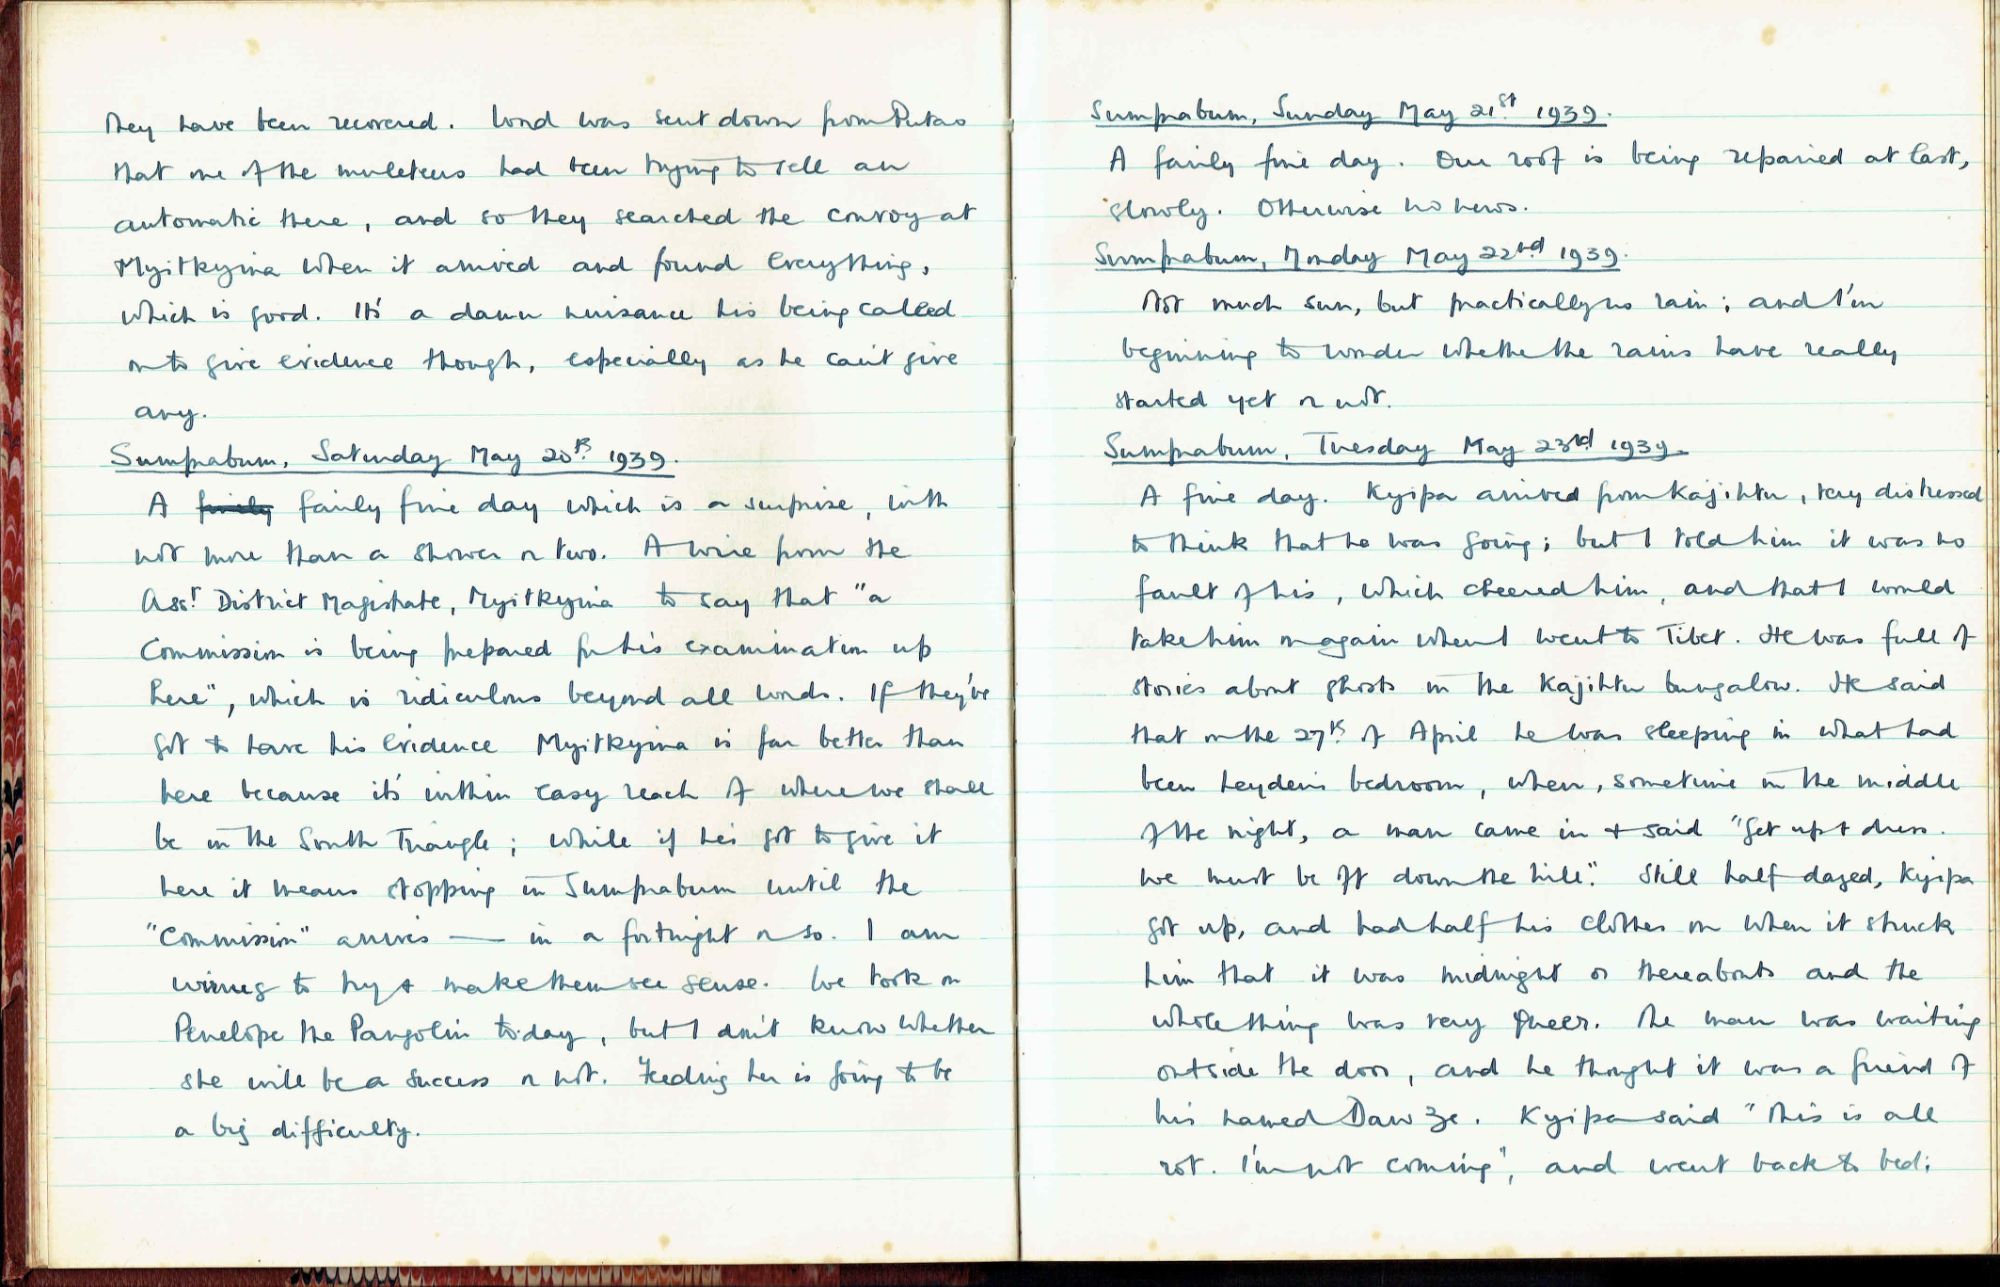 they have been recovered. Word was sent down from Putao
that one of the muleteers had been trying to sell an
automatic there, and so they searched the convoy at
Myitkyina when it arrived and found everything,
which is good. It's a damn nuisance his being called
on to give evidence though, especially as he can't give
any.
Sumprabum, Saturday May 20th. 1939.
A fairly fairly fine day which is a surprise, with
not more than a shower or two. A wire from the
Asst. District Magistrate, Myitkyina to say that "a
Commission is being prepared for his examination up
here", which is ridiculous beyond all words. If they've
got to have his evidence Myitkyina is far better than
here because it's within easy reach of where we shall
be in the South Triangle; while if he's got to give it
here it means stopping in Sumprabum until the
"Commission" arrives — in a fortnight or so. I am
wiring to try & make them see sense. We took on
Penelope the Pangolin today, but I don't know whether
she will be a success or not. Feeding her is going to be
a big difficulty.
Sumprabum, Sunday May 21st. 1939.
A fairly fine day. Our roof is being repaired at last,
slowly. Otherwise no news.
Sumprabum, Monday May 22nd. 1939.
Not much sun, but practically no rain; and I'm
beginning to wonder whether the rains have really
started yet or not.
Sumprabum, Tuesday May 23rd 1939.
A fine day. Kyipa arrived from Kajihtu, very distressed
to think that he was going; but I told him it was no
fault of his, which cheered him, and that I would
take him on again when I went to Tibet. He was full of
stories about ghosts in the Kajihtu bungalow. He said
that on the 27th. of April he was sleeping in what had
been Leyden's bedroom, when, sometime in the middle
of the night, a man came in & said "Get up & dress.
We must be off down the hill." Still half dazed, Kyipa
got up, and had half his clothes on when it struck
him that it was midnight or thereabouts and the
whole thing was very queer. The man was waiting
outside the door, and he thought it was a friend of
his named Daw Ze. Kyipa said "This is all
rot. I'm not coming", and went back to bed;